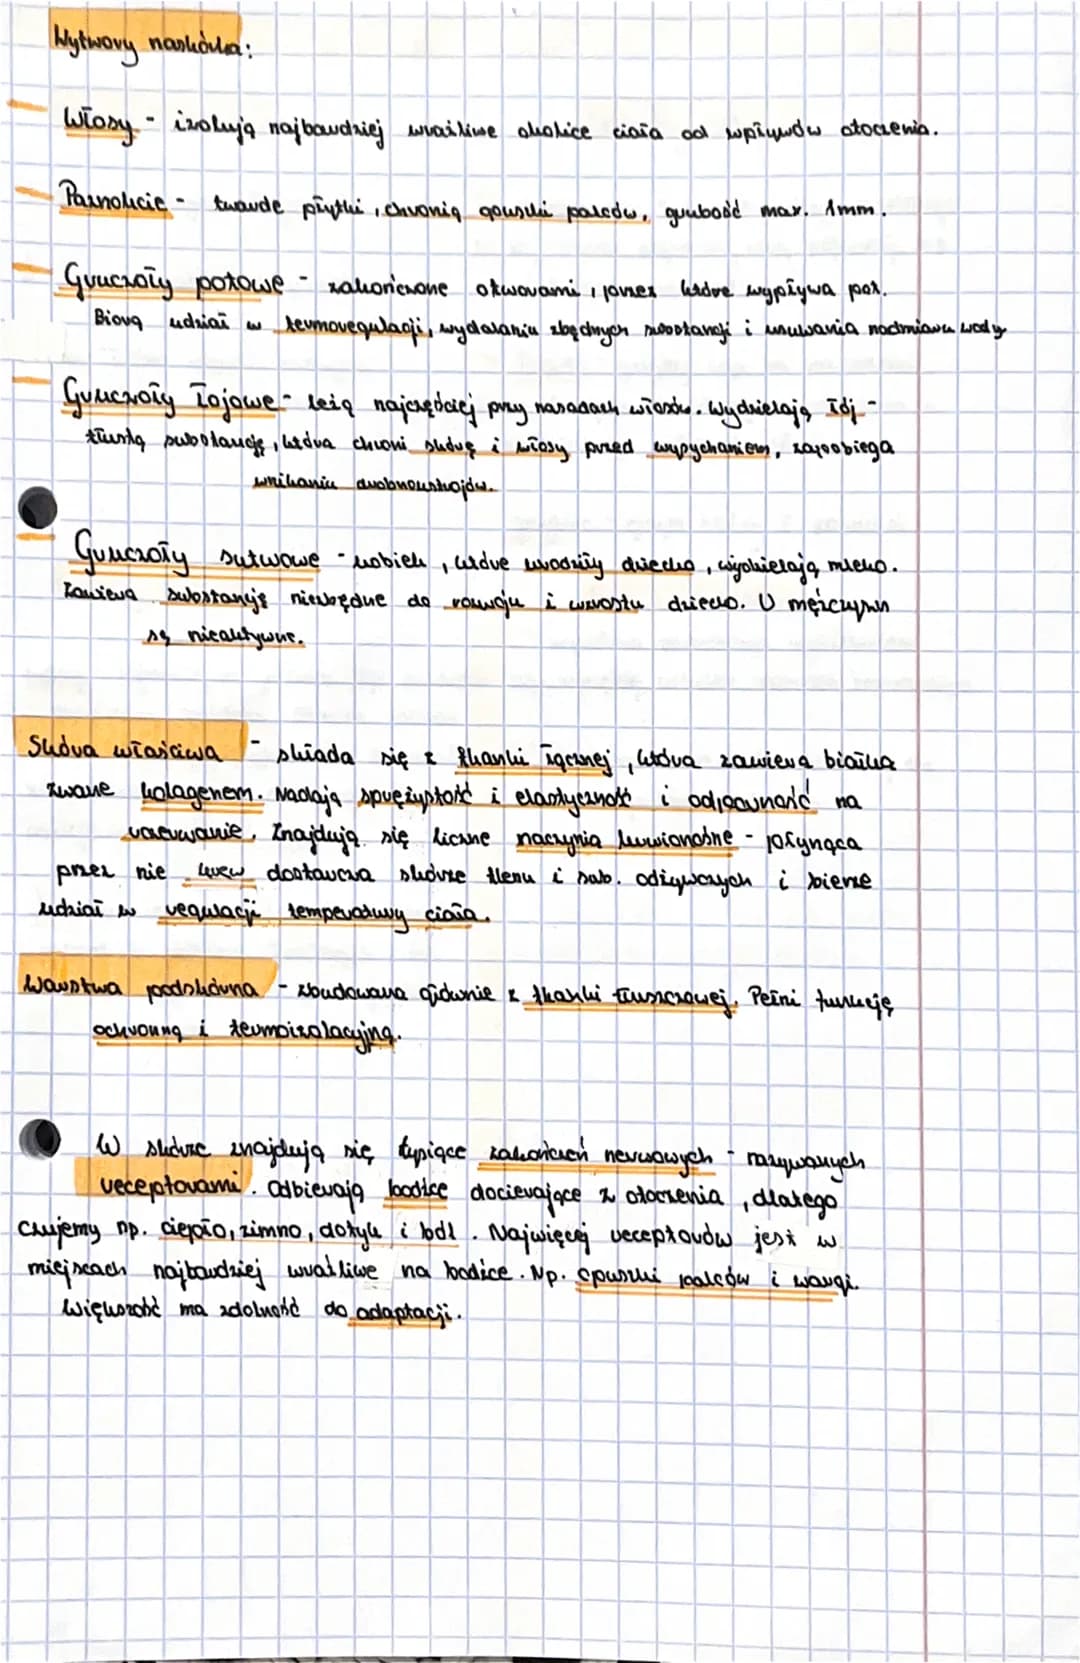 Wytwory naskórka:
Włosy - izolują najbardziej wrażliwe okolice ciała od wpływów otoczenia.
Paznokcie - twarde płytki, chronią opuszki palców, grubość max. 1mm.
Gruczoły potowe - zakończone otworami, przez które wypływa pot.
Biorą udział w termoregulacji, wydalaniu zbędnych substancji i usuwania nadmiaru wody
Gruczoły łojowe - leżą najczęściej przy nasadach włosów. Wydzielają łój -
tłustą substancję, która chroni skórę i włosy przed wypychaniem, zapobiega
wnikaniu drobnoustrojów.
Gruczoły sutkowe - kobiek, które urodziły dziecko, wydzielają mleko.
Zawiera substancje niezbędne do rozwoju i wzrostu dziecko. U mężczyzn
są nieaktywne.
Skóra właściwa - składa się z tkanki łącznej, która zawiera białka
zwane kolagenem. Nadają sprężystość i elastyczność i odporność na
rozrywanie. Znajdują się liczne naczynia krwionośne - płynąca
przez nie krew dostarcza skórze tlenu i sub. odżywczych i bierze
udział w regulacji temperatury ciała.
Warstwa podskórna - zbudowana głównie z tkanki tłuszczowej. Pełni funkcję
ochronną i termoizolacyjną.
W skórze znajdują się tysiące zakończeń nerwowych - nazywanych
receptorami. Odbierają bodźce docierające z otoczenia, dlatego
czujemy np. ciepło, zimno, dotyk i ból. Najwięcej receptorów jest w
miejscach najbardziej wrażliwe na bodźce. Np. opuszki palców i wargi.
Większość ma zdolność do adaptacji.